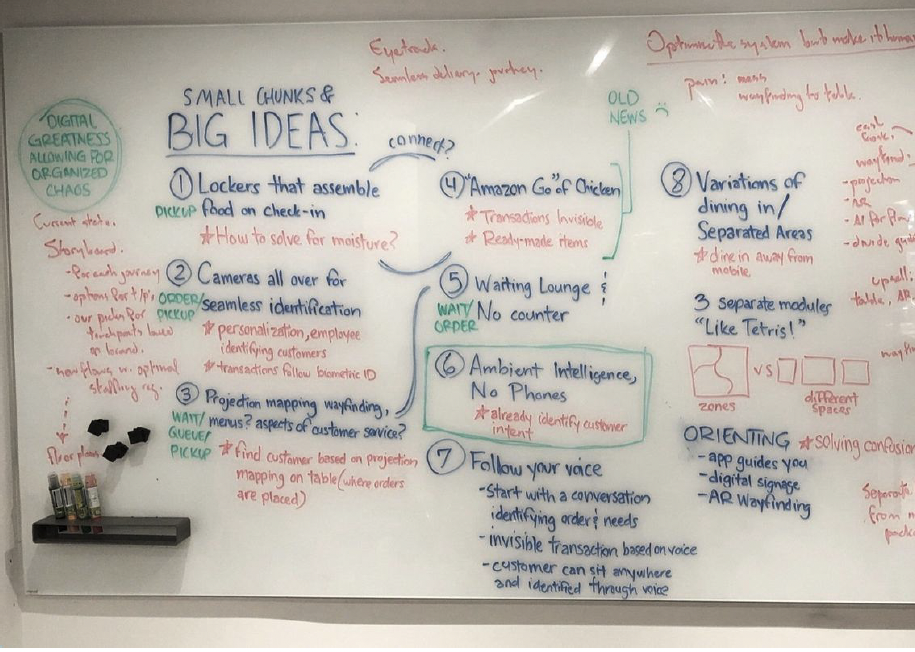 Eyetrack.
Seamless delivery journey.
Optimize the system but make it human
pain: mass
wayfinding to table.
DIGITAL
GREATNESS
ALLOWING FOR
ORGANIZED
CHAOS
Current state.
Storyboard.
- For each journey
- our
touchpoints based
on brand.
- new flows w. optimal
staffing
Floor plans
SMALL CHUNKS &
BIG IDEAS:
connect?
① Lockers that assemble
PICKUP food on check-in
* How to solve for moisture?
② Cameras all over for
ORDER/ seamless identification
PICKUP
* personalization, employee
identifying customers
* transactions follow biometric ID
③ Projection mapping wayfinding,
WAIT/ menus? aspects of customer service?
QUEUE/
PICKUP
* find customer based on projection
mapping on table (where orders
are placed)
OLD
NEWS
④ "Amazon Go" of Chicken
* Transactions Invisible
* Ready-made items
⑤ Waiting Lounge &
WAIT/ No counter
ORDER
⑥ Ambient Intelligence,
No Phones
* already identify customer
intent
⑦ Follow your voice
- Start with a conversation
identifying order & needs
- invisible transaction based on voice
- customer can sit anywhere
and identified through voice
⑧ Variations of
dining in/
Separated Areas
* dine in away from
mobile
3 separate modules
"Like Tetris!"
VS
zones
different
spaces
ORIENTING * solving confusion
- app guides you
- digital signage
- AR Wayfinding
- projection
- AR
- AI for flow
upsell:
table, AR
from